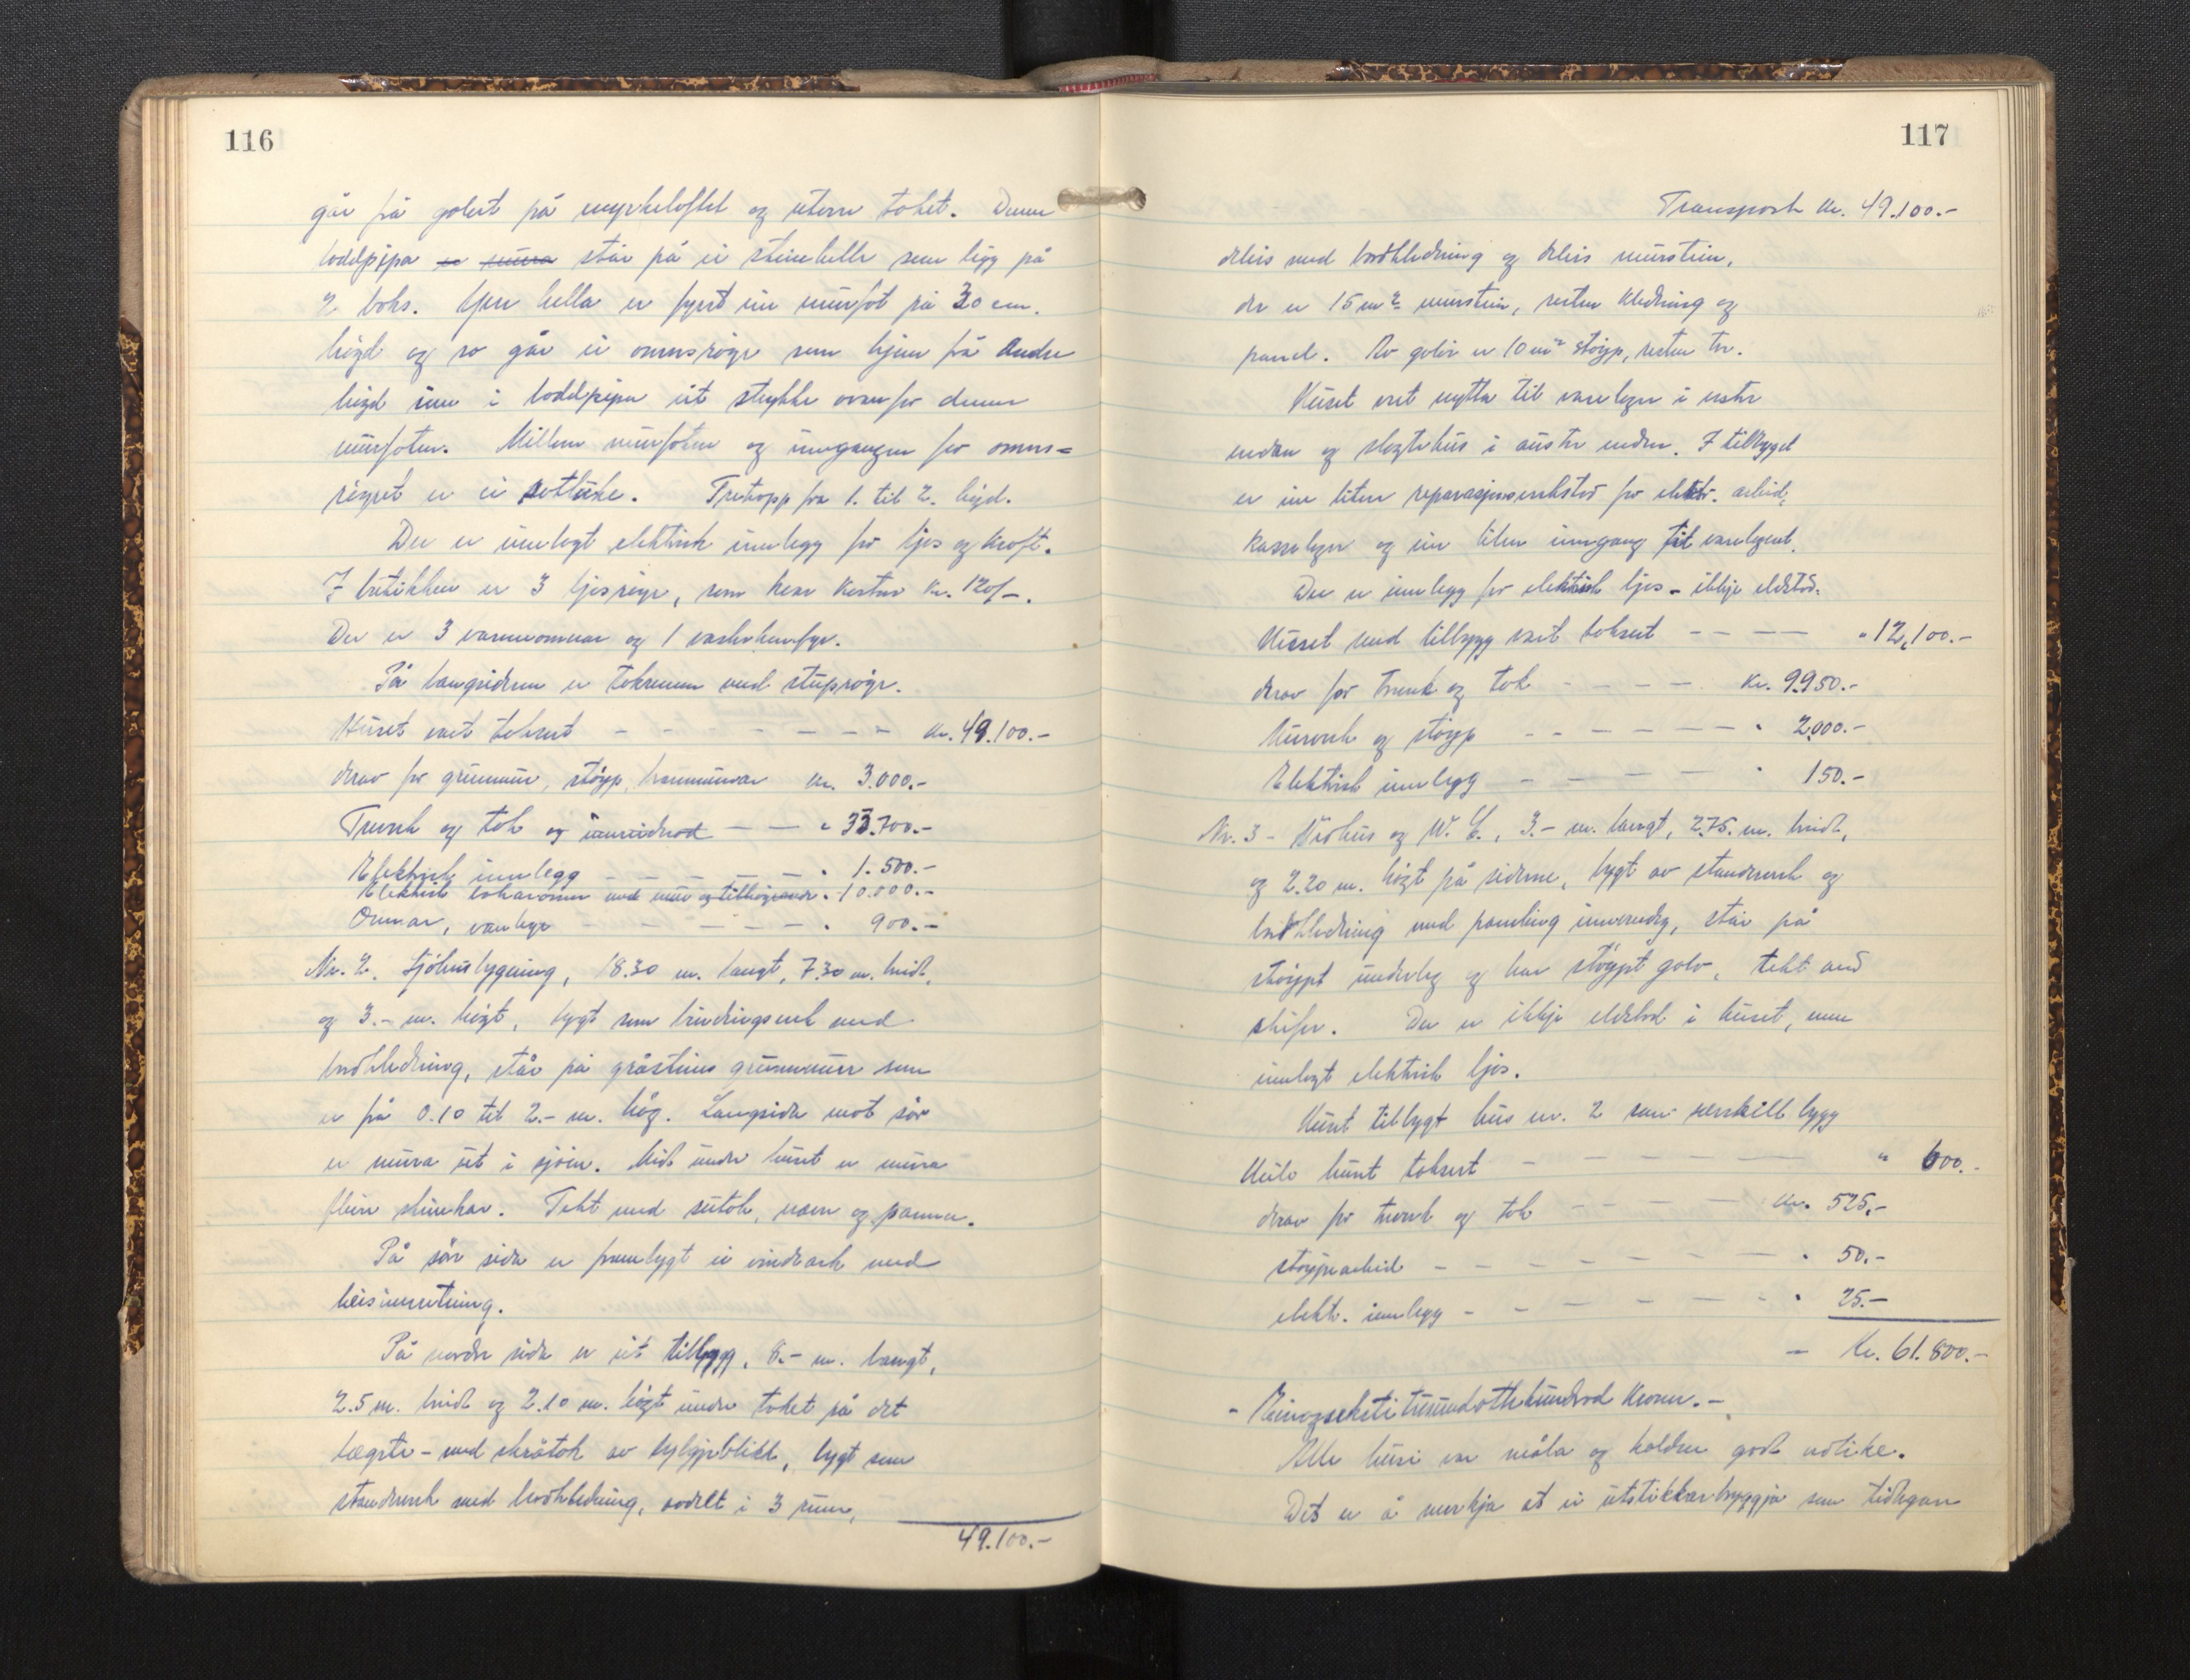 116
går frå golvet på myrkeloftet og utover taket. Denne
loddpipa er mura står på ei steinhelle som ligg på
2 boks. Yver hella er fyrst ein murfot på 30 cm.
högd og so går ei omnsröyr som kjem frå andre
högd inn i loddpipa eit stykke ovanfor denne
murfoten. Millom murfoten og inngangen for omns=
röyret er ei sotluke. Tretropp fra 1. til 2. högd.
Der er innlagt elektrisk innlegg for ljos og kraft.
I butikken er 3 ljosröyr, som kvar kostar kr. 120/-.
Der er 3 varmeomnar og 1 vaskekomfyr.
På langsidene er takrenner med stupröyr.
Huset vart taksert - - - - - - - kr. 49.100.-
derav for grunnmur, stöyp, brannmurar kr. 3.000.-
Treverk og tak og innreidnad - - - " 33.700.-
Elektrisk innlegg - - - - - " 1.500.-
Elektrisk bakaromn med mur og tilhöyrande " 10.000.-
Omnar, vanlege - - - - - " 900.-
Nr. 2. Sjöhusbygning, 18.30 m. langt, 7.30 m. breidt,
og 3.- m. högt, bygt som bindingsverk med
bordkledning, står på gråsteins grunnmur som
er frå 0.10 til 2.- m. høg. Langsida mot sør
er mura ut i sjöen. Midt under huset er mura
fleire steinkar. Tekt med sutak, næver og panner.
På sør sida er frambygt ei vindeark med
heisinnretning.
På nordre sida er eit tilbygg, 8.- m. langt,
2.5 m. breidt og 2.10 m. högt under taket på det
lægste - med skråtak av bylgjeblikk, bygt som
standverk med bordkledning, avdelt i 3 rum,
49.100.-
117
Transport kr. 49.100.-
delvis med bordkledning og delvis murstein,
der er 15 m² murstein, resten kledning og
panel. Av golv er 10 m² stöyp, resten tre.
Huset vert nytta til varelager i vestre
enden og sløgtehus i austre enden. I tilbygget
er ein liten reparasjonsverkstad for elektr. arbeid,
kasselager og ein liten inngang til varelageret.
Der er innlegg for elektrisk ljos - ikkje eldstad.
Huset med tilbygg vart taksert - - - - " 12,100.-
derav for treverk og tak - - - - kr. 9.950.-
Murverk og stöyp - - - - - - " 2.000.-
Elektrisk innlegg - - - - - " 150.-
Nr. 3 - Vedhus og W. C., 3.- m. langt, 2.75. m. breidt,
og 2.20 m. högt på sidene, bygt av standverk og
bordkledning med paneling innvendig, står på
stöypt underlag og har stöypt golv, tekt med
skifer. Der er ikkje eldstad i huset, men
innlagt elektrisk ljos.
Huset tilbygt hus nr. 2 som serskilt bygg
Heile huset taksert - - - - - " 600.-
derav for treverk og tak - - - - kr. 525.-
stöypearbeid - - - - - - " 50.-
elektr. innlegg - - - - - - " 25.-
- kr. 61.800.-
- Einogseksti tusundottehundrad kroner. -
Alle husi var måla og haldne godt vedlike.
Det er å merkja at ei utstikkarbryggja som tidlegare